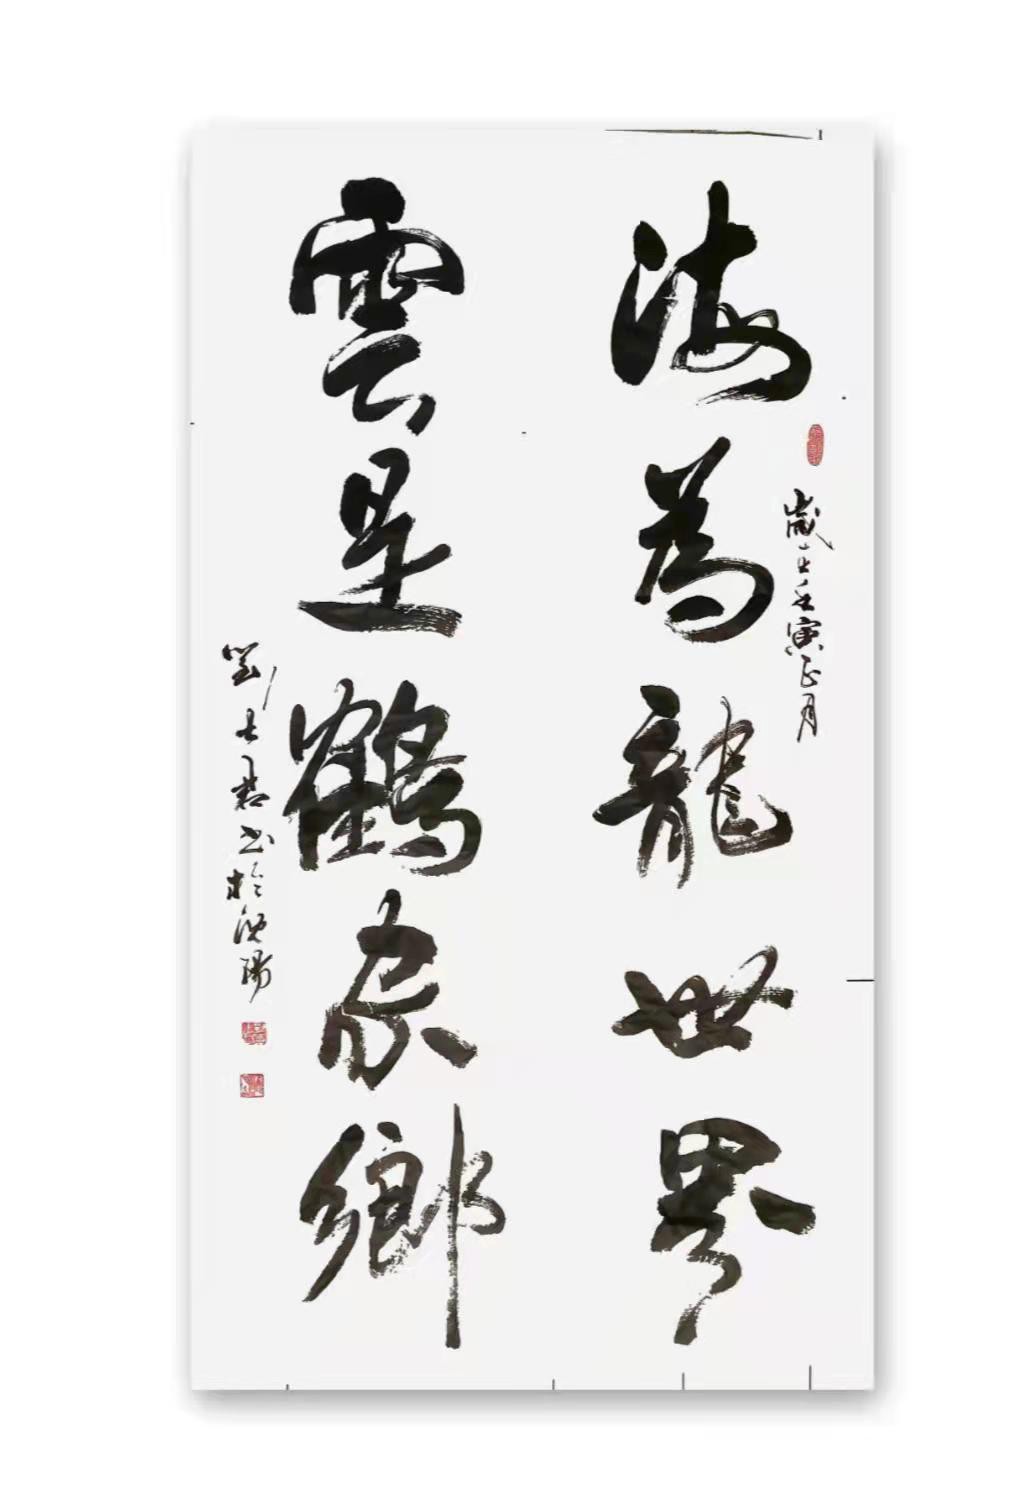 海為龍世界
歲在壬寅正月
雲是鶴家鄉
劉大君书於沈陽